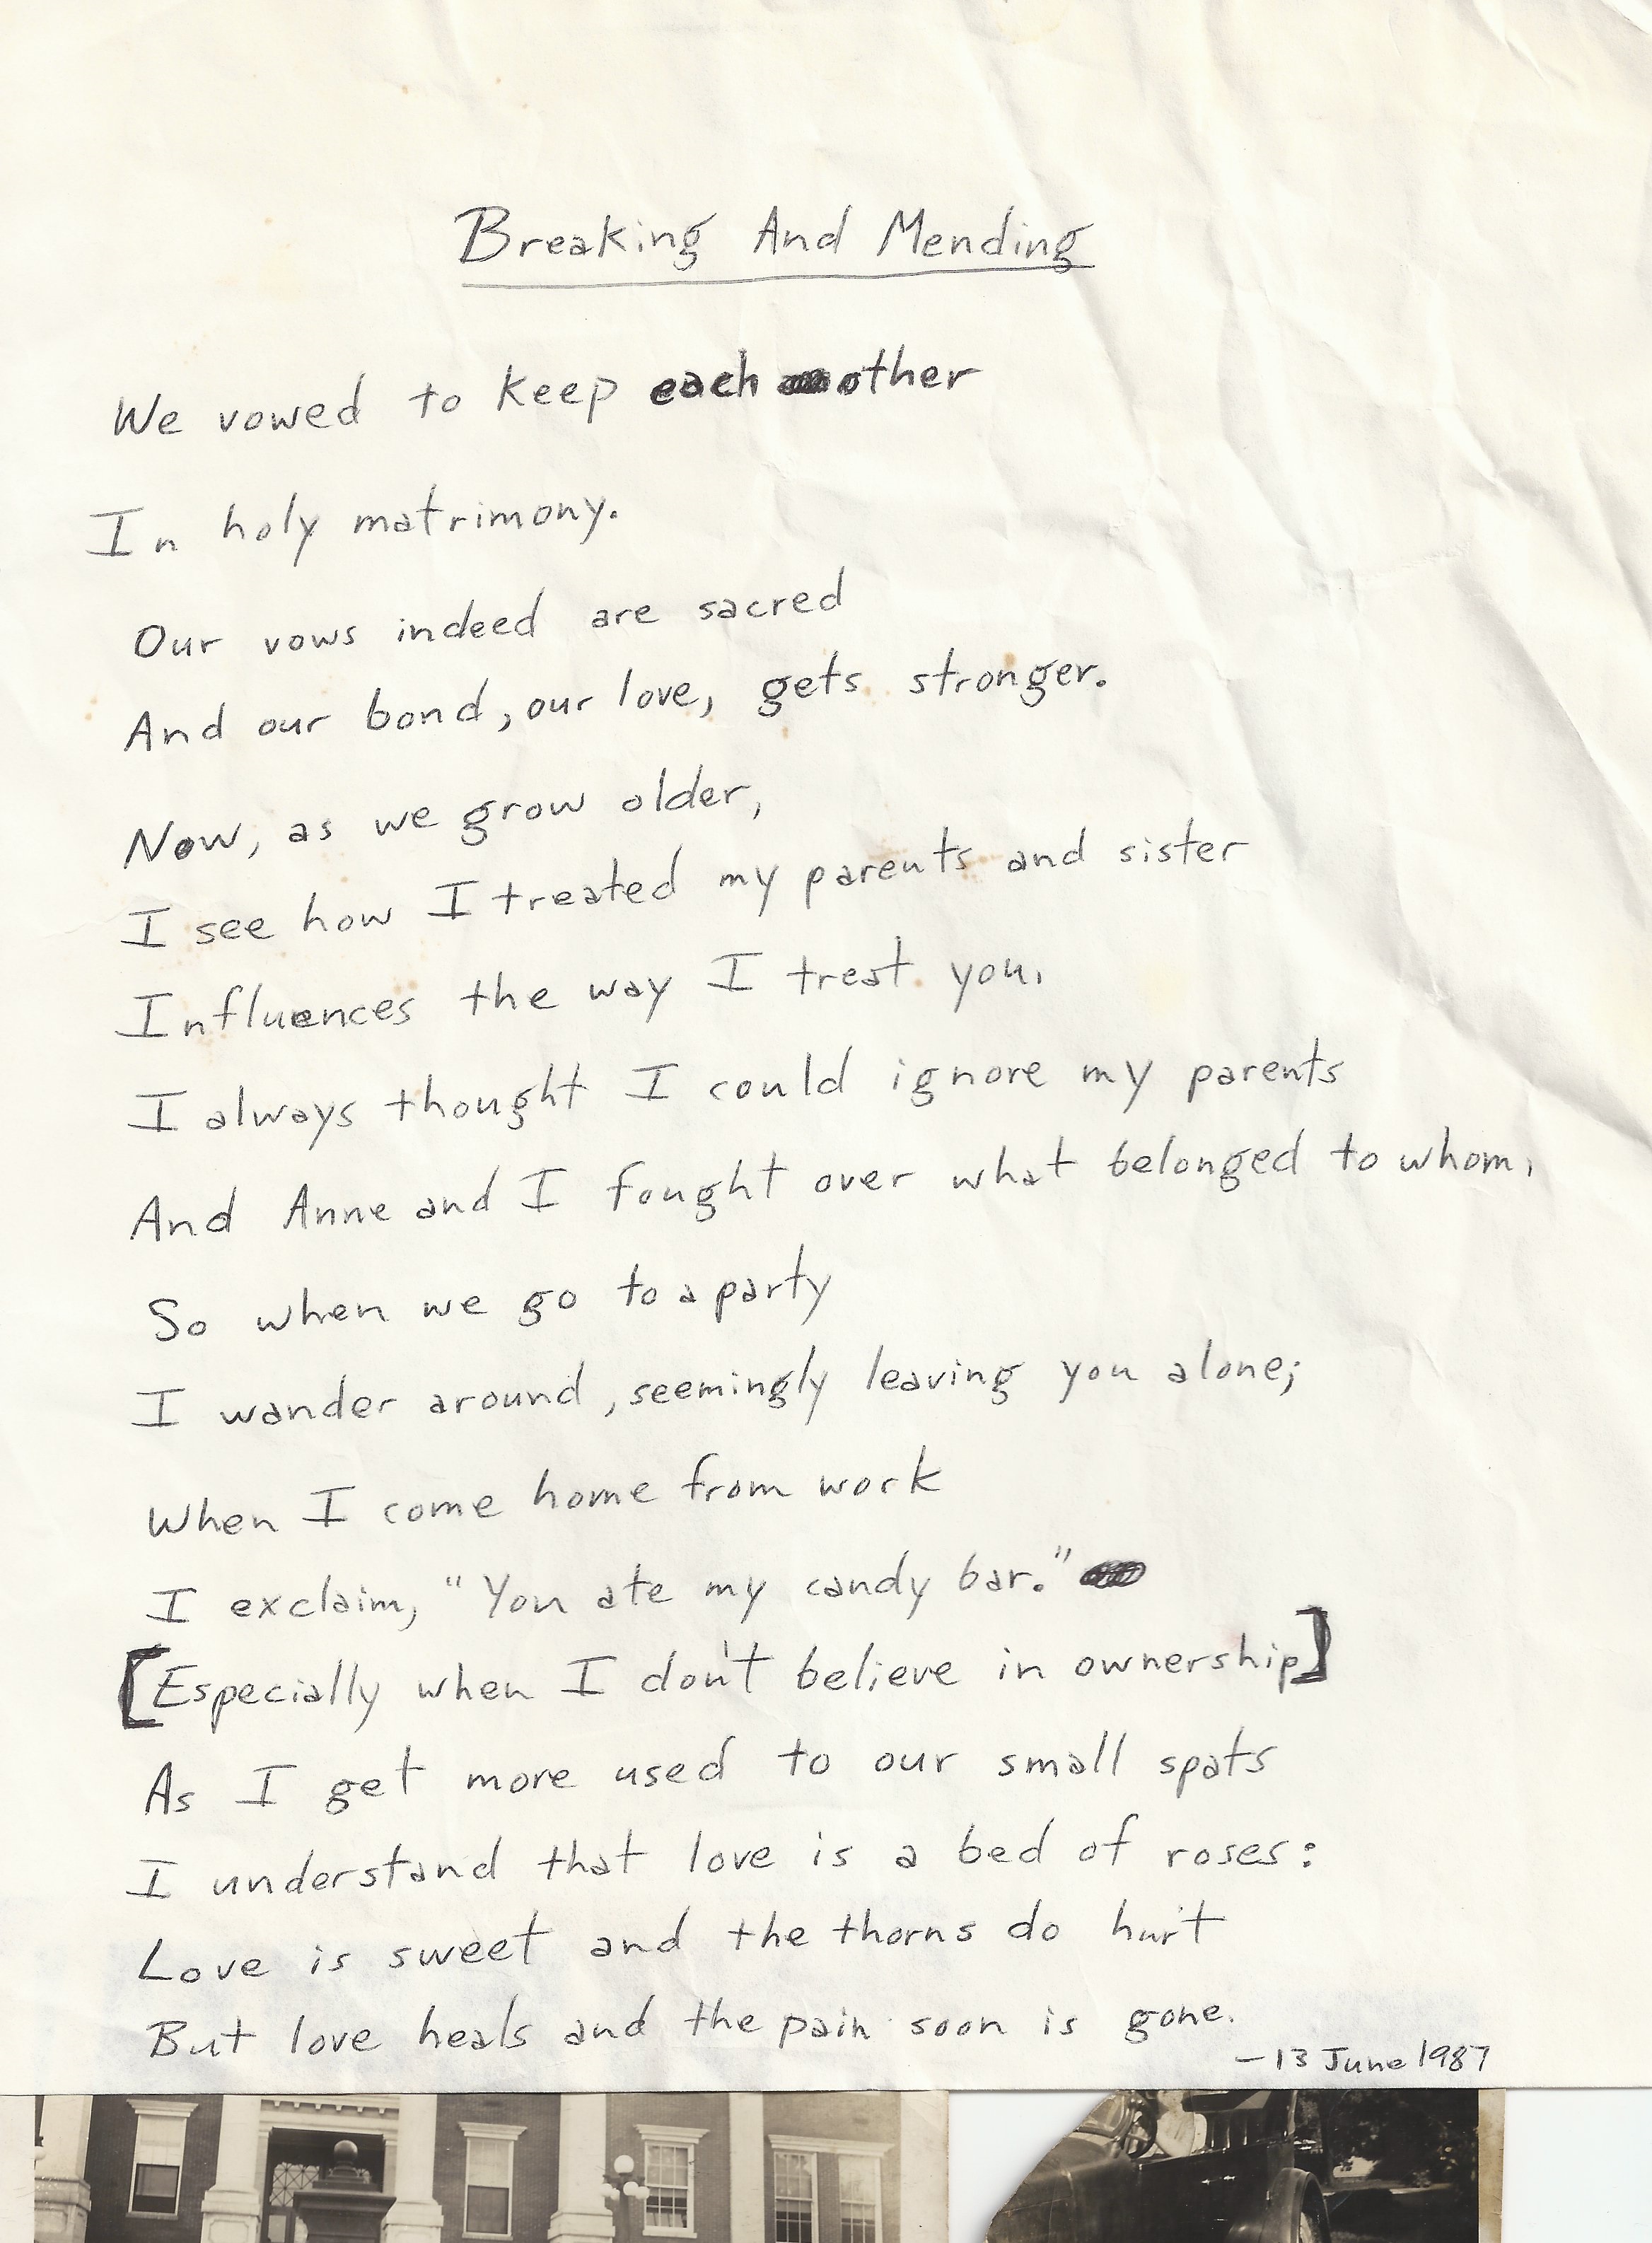 Breaking And Mending
We vowed to keep each other
In holy matrimony.
Our vows indeed are sacred
And our bond, our love, gets stronger.
Now, as we grow older,
I see how I treated my parents and sister
Influences the way I treat you.
I always thought I could ignore my parents
And Anne and I fought over what belonged to whom.
So when we go to a party
I wander around, seemingly leaving you alone;
When I come home from work
I exclaim, "You ate my candy bar."
[Especially when I don't believe in ownership]
As I get more used to our small spats
I understand that love is a bed of roses:
Love is sweet and the thorns do hurt
But love heals and the pain soon is gone.
—13 June 1987